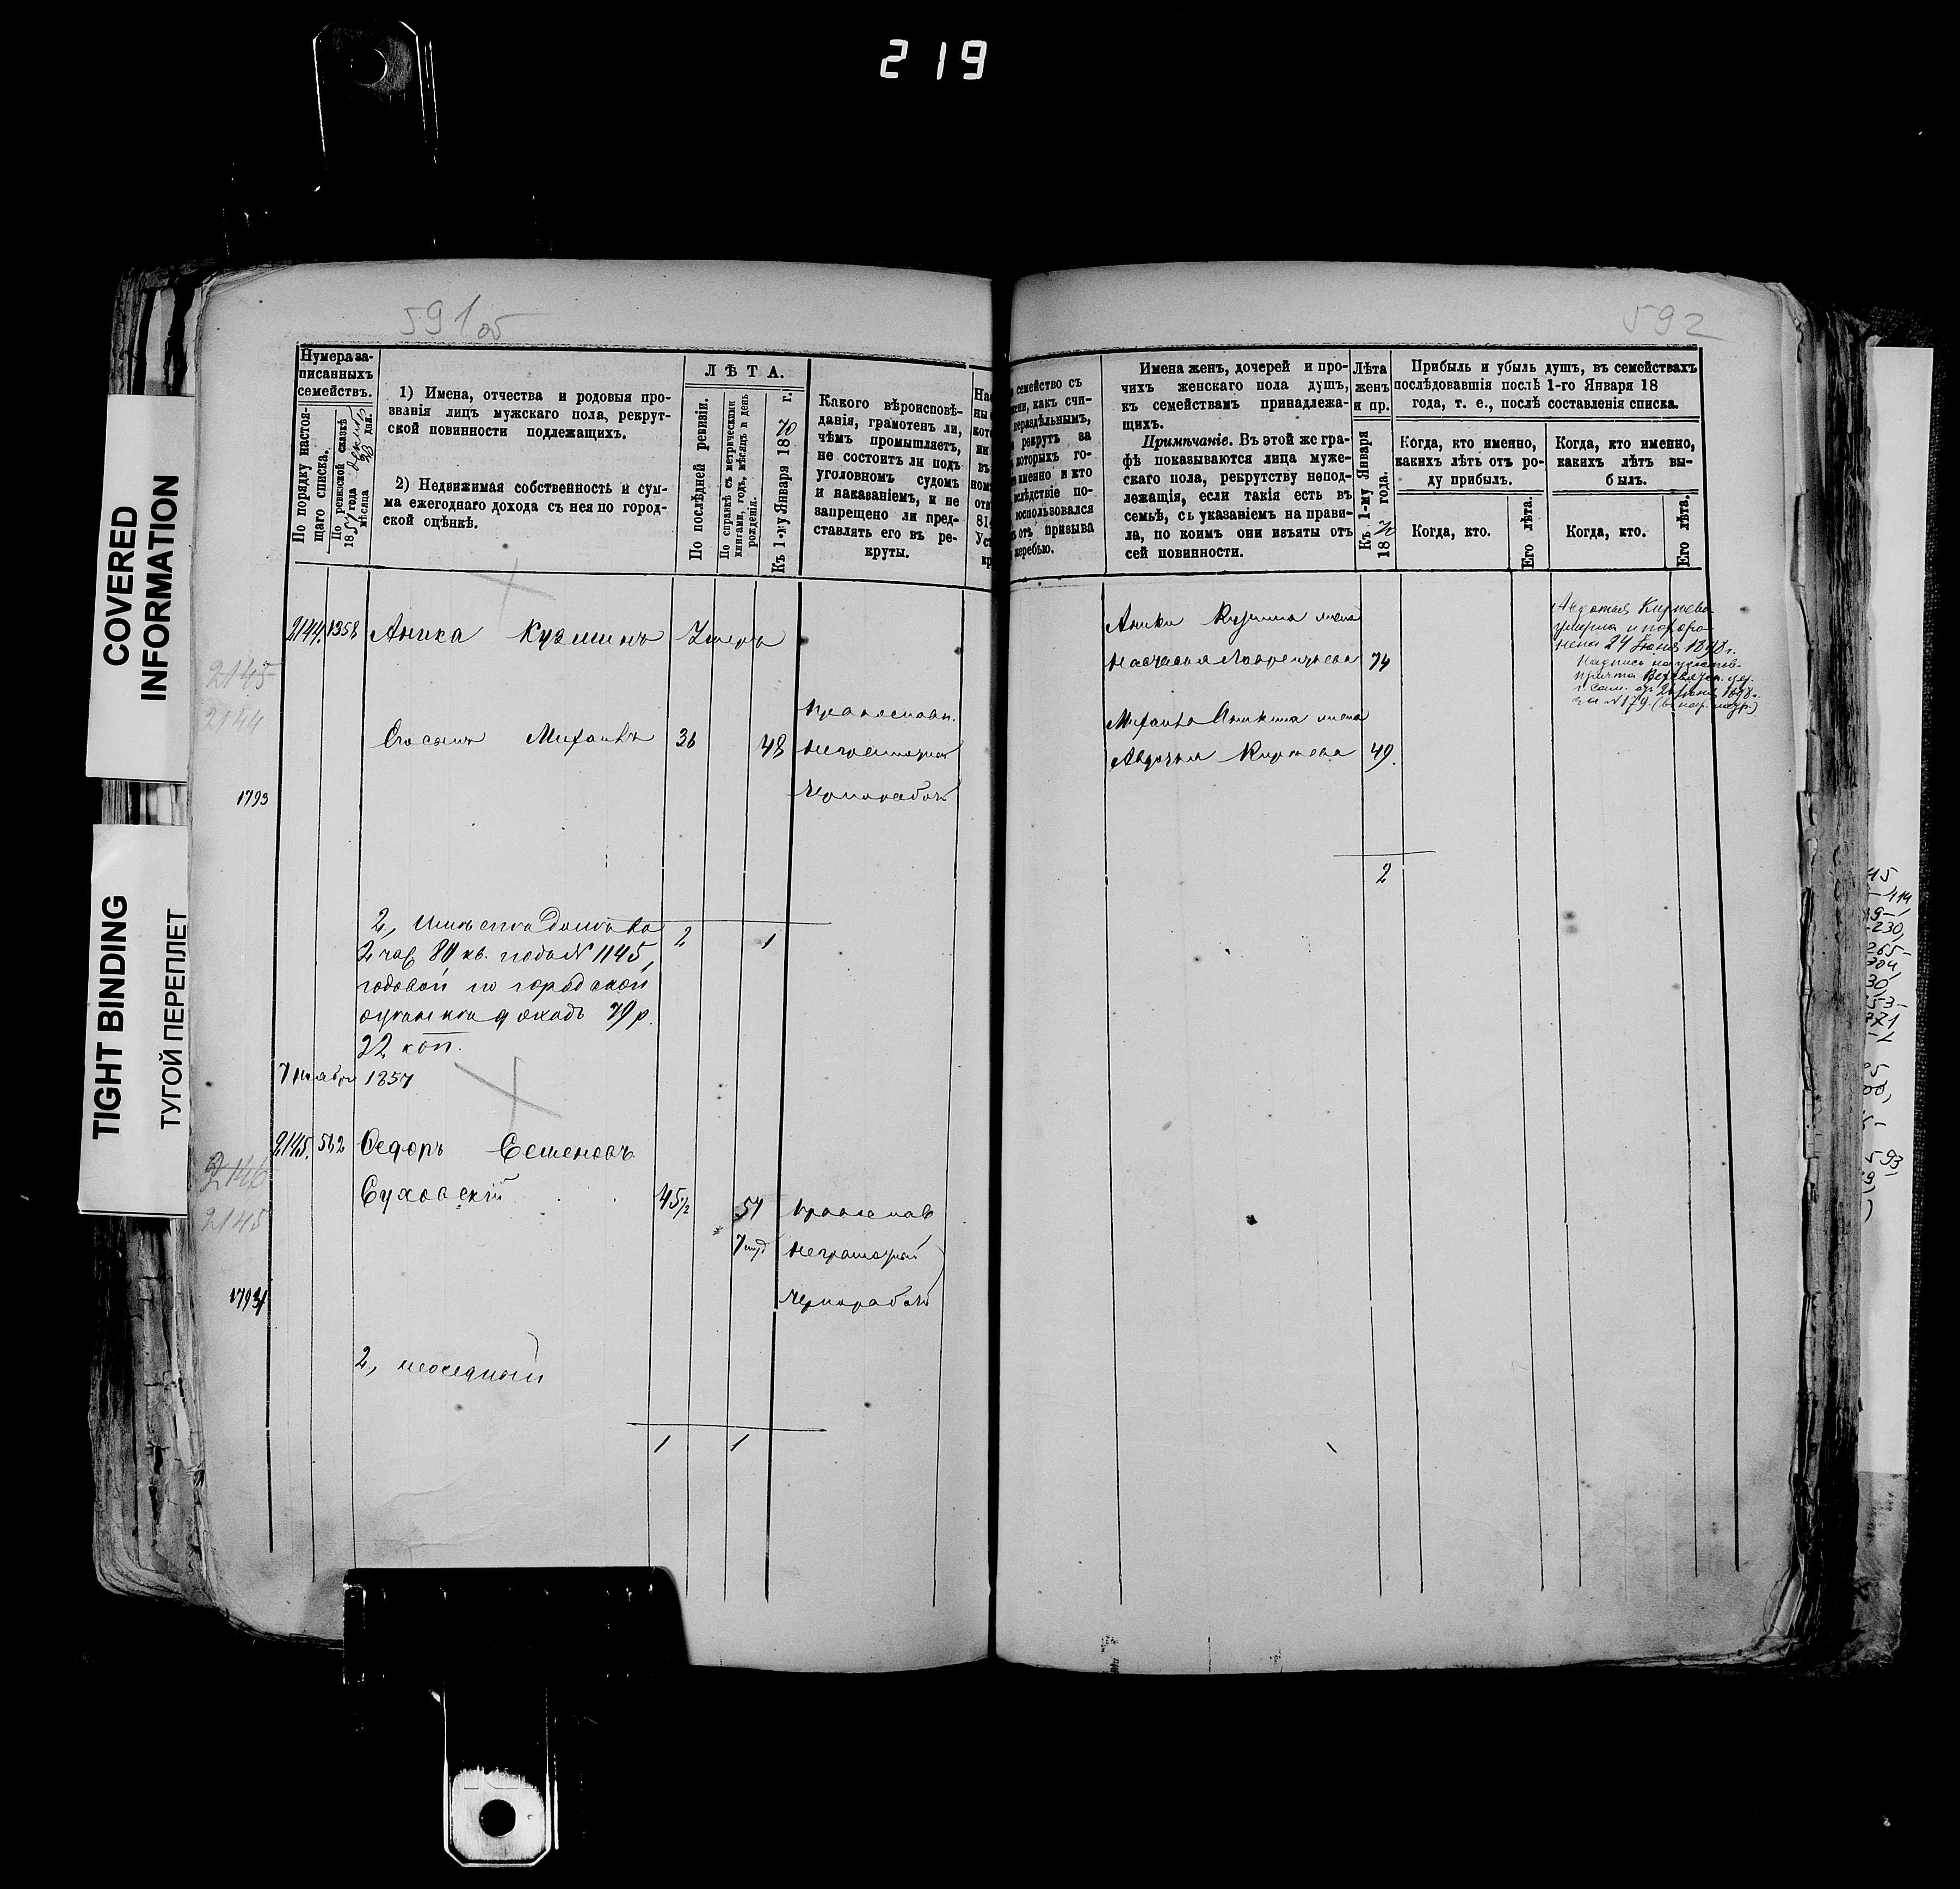 219
COVERED
INFORMATION
TIGHT BINDING
ТУГОЙ ПЕРЕПЛЕТ
591 об
Нумера за-
писанныхъ
семействъ.
По порядку настоя-
щаго списка.
По ревизской сказкѣ
18 года
мѣсяца дня.
1) Имена, отчества и родовыя про-
званія лицъ мужскаго пола, рекрут-
ской повинности подлежащихъ.
2) Недвижимая собственность и сум-
ма ежегоднаго дохода съ нея по город-
ской оцѣнкѣ.
ЛѢТА.
По послѣдней ревизіи.
По справкѣ съ метрическими
книгами, годъ, мѣсяцъ и день
рожденія.
Къ 1-му Января 1870 г.
Какого вѣроисповѣ-
данія, грамотенъ ли,
чѣмъ промышляетъ,
не состоитъ ли подъ
уголовномъ судомъ
и наказаніемъ, и не
запрещено ли пред-
ставлять его въ ре-
круты.
2144. 1358 Аника Кузминъ Умеръ
2145
2144
Его сынъ Михаилъ 36 48
православн.
неграмотный
чернорабоч
1793
2, Имѣетъ домъ во
2 час 80 кв. подъ № 1145,
годовой по городской
оцѣнкѣ доходъ 79 р.
22 коп.
2 1
7 ноября 1857
2145. 562 Ѳедоръ Семеновъ
Суховскій 45½ 57
православ
неграмотный
чернорабоч
2146
2145
1793/
2, неоседлый
1 1
592
семейство съ
какъ счи-
нераздѣльнымъ,
рекрутъ за
которыхъ го-
именно и кто
вслѣдствіе по-
воспользовался
отъ призыва
жеребью.
Имена женъ, дочерей и про-
чихъ женскаго пола душъ,
къ семействамъ принадлежа-
щихъ.
Примѣчаніе. Въ этой же гра-
фѣ показываются лица муже-
скаго пола, рекрутству непод-
лежащія, если такія есть въ
семьѣ, съ указаніемъ на прави-
ла, по коимъ они изъяты отъ
сей повинности.
Лѣта
женъ
и пр.
Къ 1-му Января
1870 года.
Прибыль и убыль душъ, въ семействахъ
послѣдовавшія послѣ 1-го Января 18
года, т. е., послѣ составленія списка.
Когда, кто именно,
какихъ лѣтъ отъ ро-
ду прибылъ.
Когда, кто именно,
какихъ лѣтъ вы-
былъ.
Когда, кто.
Его лѣта.
Когда, кто.
Его лѣта.
Аники Кузмина жена
Настасья Лаврентьева 74
Михаила Аникина жена
Авдотья Киреева 49.
2
Авдотья Киреева
умерла и похоро-
нена 24 Июня 1898 г.